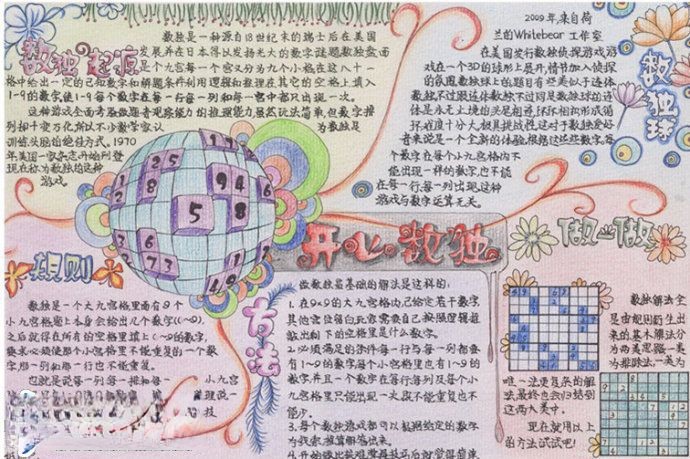 数独起源
数独是一种源自18世纪末的瑞士后在美国
发展并在日本得以发扬光大的数字谜题数独盘面
是个九宫每一个宫又分为九个小格在这八十一
格中给出一定的已知数字和解题条件利用逻辑和推理在其它的空格上填入
1-9的数字使1-9每个数字在每一行每一列和每一宫中都只出现一次。
这种游戏全面考验做题者观察能力的推理能力虽然玩法简单但数字排
列却千变万化所以不少教育家认为数独是
训练头脑的绝佳方式。1970
年美国一家杂志开始刊登
现在称为数独的这种
游戏
2009年,来自荷
兰的Whitebear工作室
在美国发行数独侦探游戏游
戏在一个3D的球形上展开,情节加入侦探
的氛围数独球上的题目有些类似于连体
数独不过跟连体数独不同是数独球的连
体是永无止境的头是相连环环相扣形成循
环难度十分大极具挑战性这对于数独爱好
者来说是一个全新的体验,根据这些数字,每
个数字在每个小九宫格内不
能出现一样的数字,也不能
在每一行,每一列出现这种
游戏与数字运算无关。
数独球
1 2 5
2 8 9 4 6
5 8 1
3 6
2 7 3 4 9
开心数独
做一做
规则
数独是一个大九宫格里面有9个
小九宫格题上本身会给出几个数字(1~9).
之后就得在所有的空格里填上1~9的数字,
要求必须使那个小宫格里不能重复的一个数
字那一列和那一行也不能重复。
也就是说每一列每一排和每一个小九宫
方法
做数独最基础的解法是这样的:
1.在9×9的大九宫格内,已给定若干数字
其他宫位留白玩家需要自己按照逻辑
敲出剩下的空格里是什么数字。
2.必须满足的条件每一行与每一列都要
有1~9的数字每个小宫格里也有1~9的数
字并且一个数字在等行每列及每个小
九宫格里只能出现一次,既不能重复也不
能少。
3.每个数独游戏都可以根据给定的数字
为线索推算解答出来。
数独解法全
是由规则衍生出
来的基本解法分
为两类思路一类
为排除法,一类为
唯一法更复杂的解
法最终也会归结到
这两大类中。
现在就用以上
的方法试试吧!